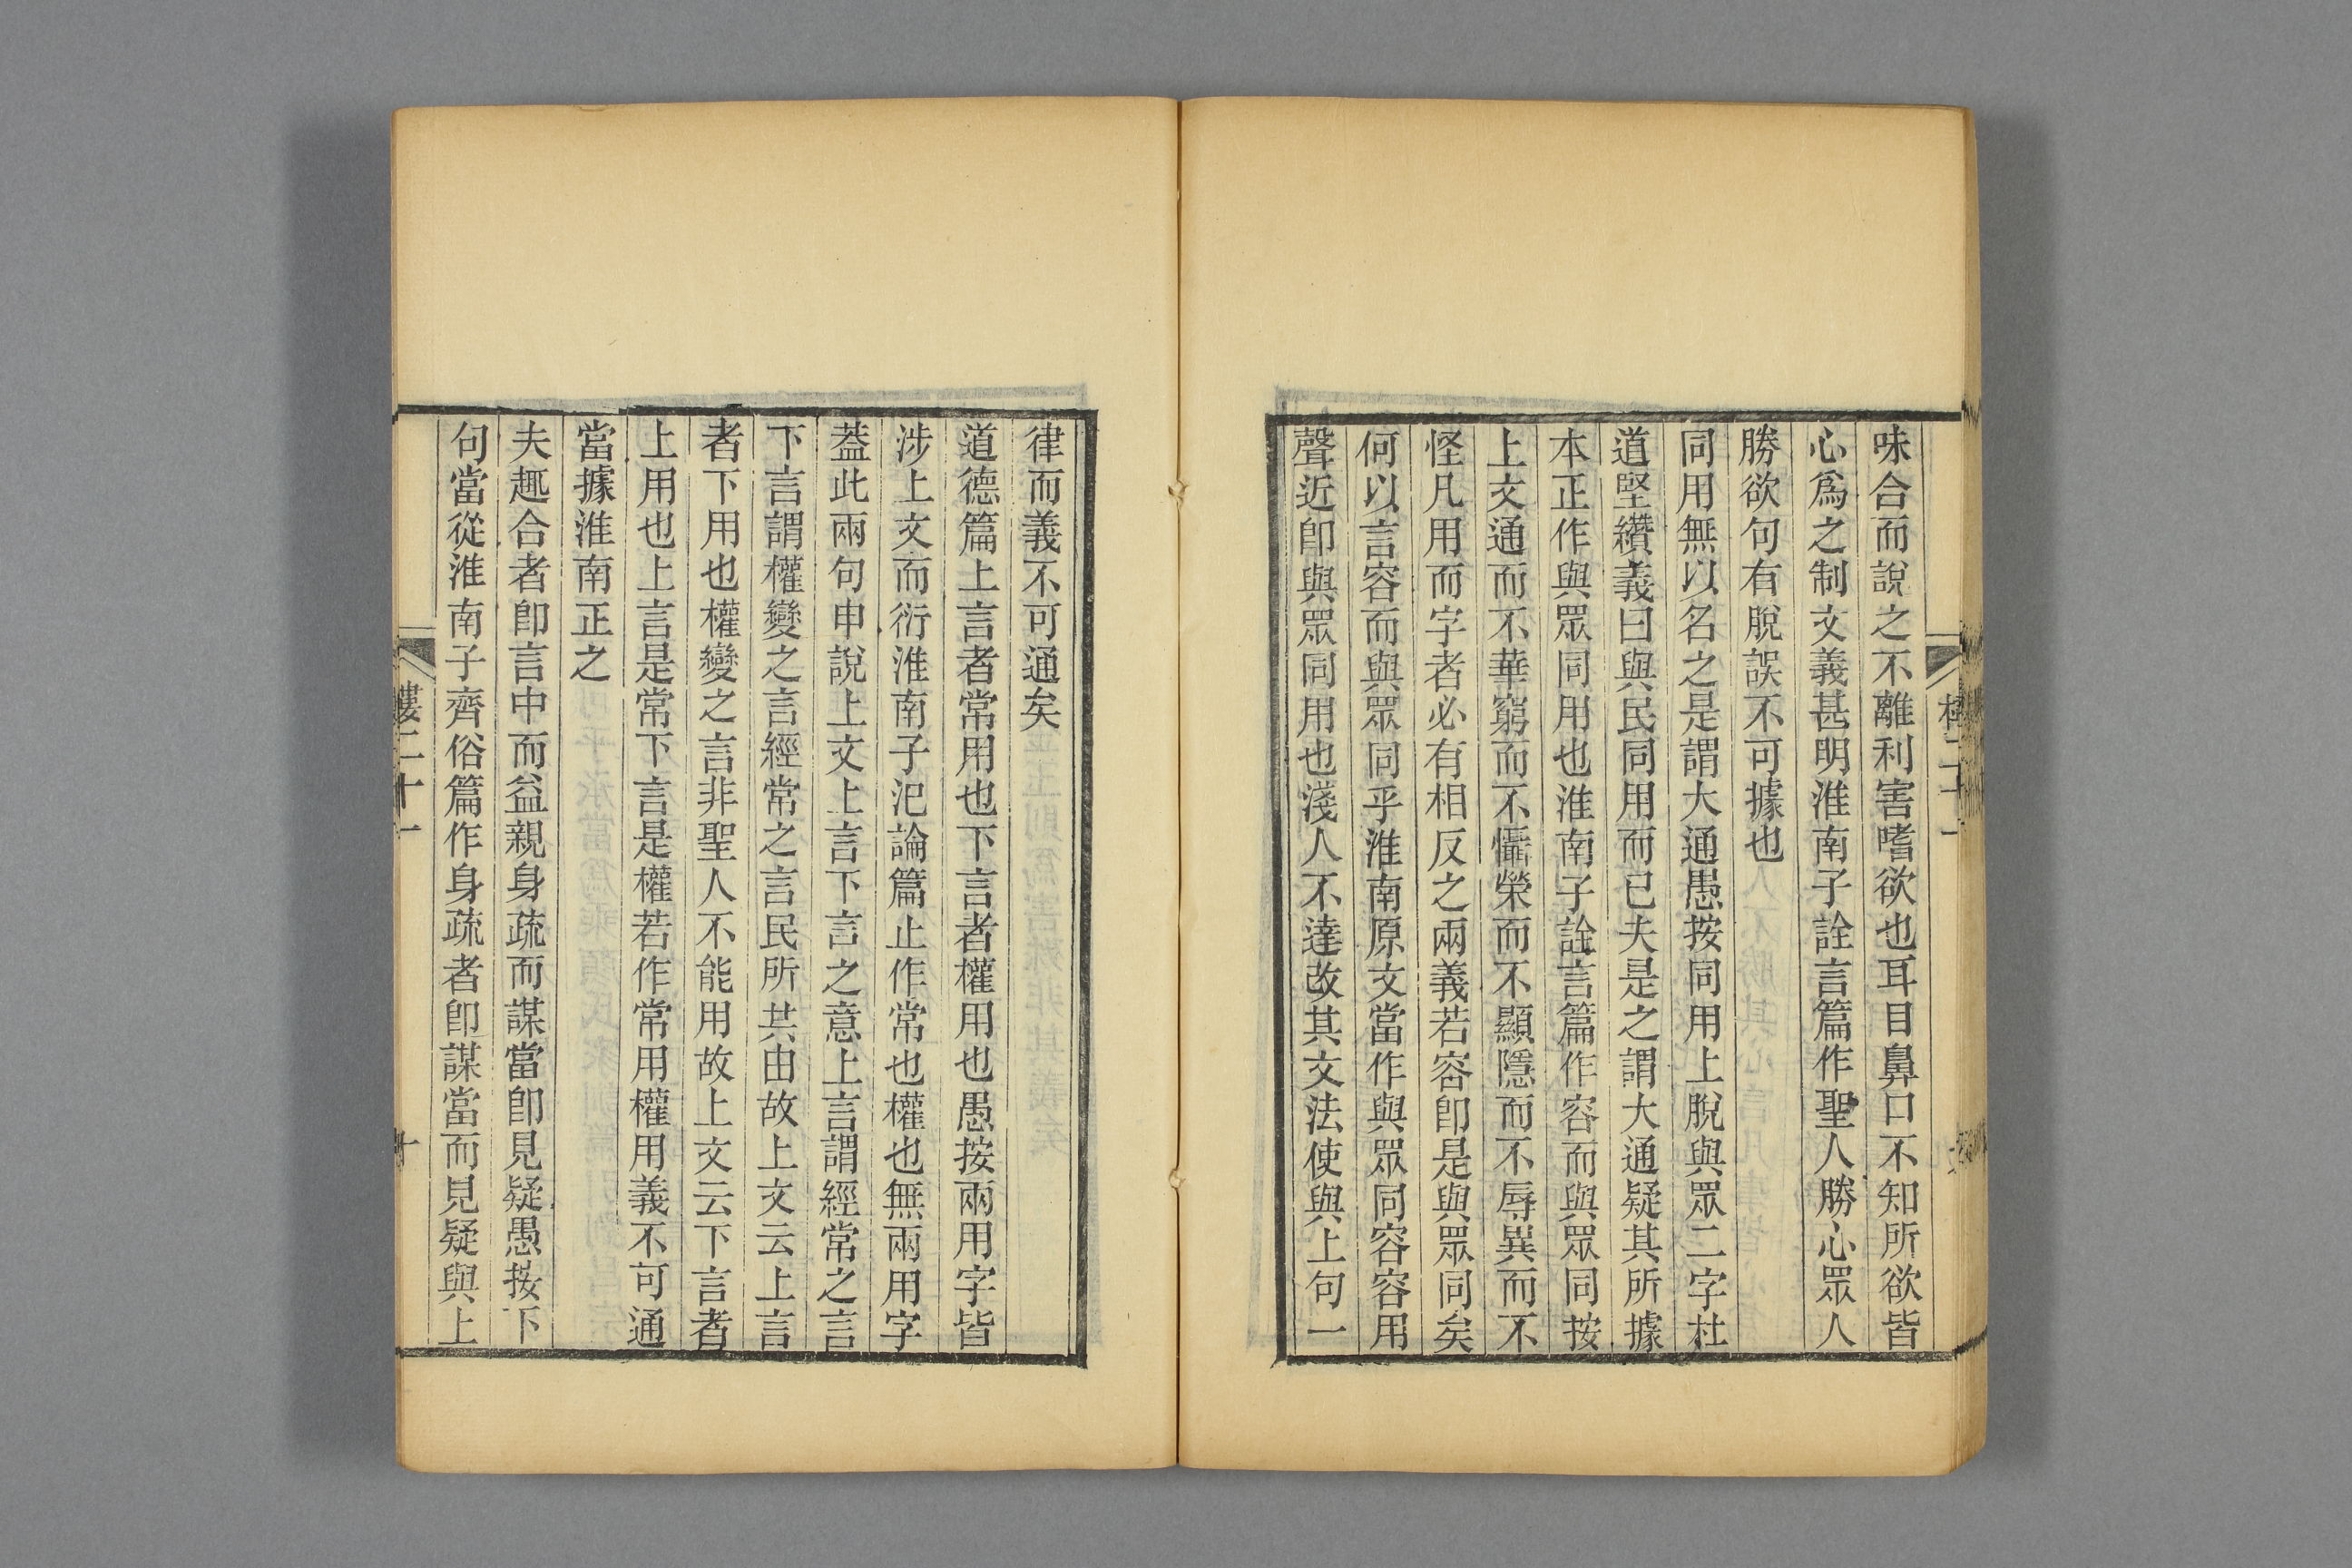 味合而說之不離利害嗜欲也耳目鼻口不知所欲皆
心爲之制文義甚明淮南子詮言篇作聖人勝心眾人
勝欲句有脫誤不可據也
同用無以名之是謂大通愚按同用上脫與眾二字杜
道堅纘義曰與民同用而已夫是之謂大通疑其所據
本正作與眾同用也淮南子詮言篇作容而與眾同按
上文通而不華窮而不懾榮而不顯隱而不辱異而不
怪凡用而字者必有相反之兩義若容卽是與眾同矣
何以言容而與眾同乎淮南原文當作與眾同容容用
聲近卽與眾同用也淺人不達改其文法使與上句一
律而義不可通矣
道德篇上言者常用也下言者權用也愚按兩用字皆
涉上文而衍淮南子氾論篇止作常也權也無兩用字
蓋此兩句申說上文上言下言之意上言謂經常之言
下言謂權變之言經常之言民所共由故上文云上言
者下用也權變之言非聖人不能用故上文云下言者
上用也上言是常下言是權若作常用權用義不可通
當據淮南正之
夫趣合者卽言中而益親身疏而謀當卽見疑愚按下
句當從淮南子齊俗篇作身疏者卽謀當而見疑與上
樓二十一
十